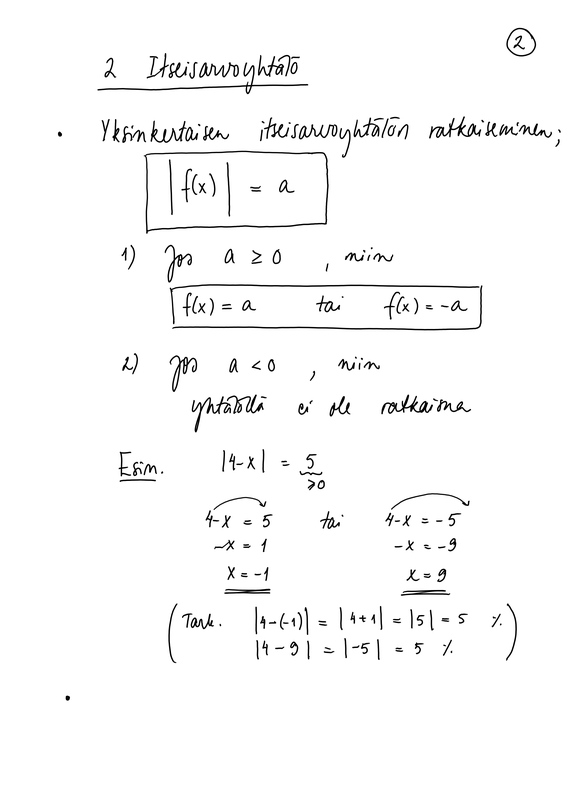 2
2 Itseisarvoyhtälö
• Yksinkertaisen itseisarvoyhtälön ratkaiseminen;
|f(x)| = a
1) Jos a ≥ 0 , niin
f(x) = a tai f(x) = -a
2) Jos a < 0 , niin
yhtälöllä ei ole ratkaisua
Esim. |4-x| = 5
≥0
4-x = 5 tai 4-x = -5
-x = 1 -x = -9
x = -1 x = 9
(Tark. |4-(-1)| = |4+1| = |5| = 5 %.
|4-9| = |-5| = 5 %.)
•